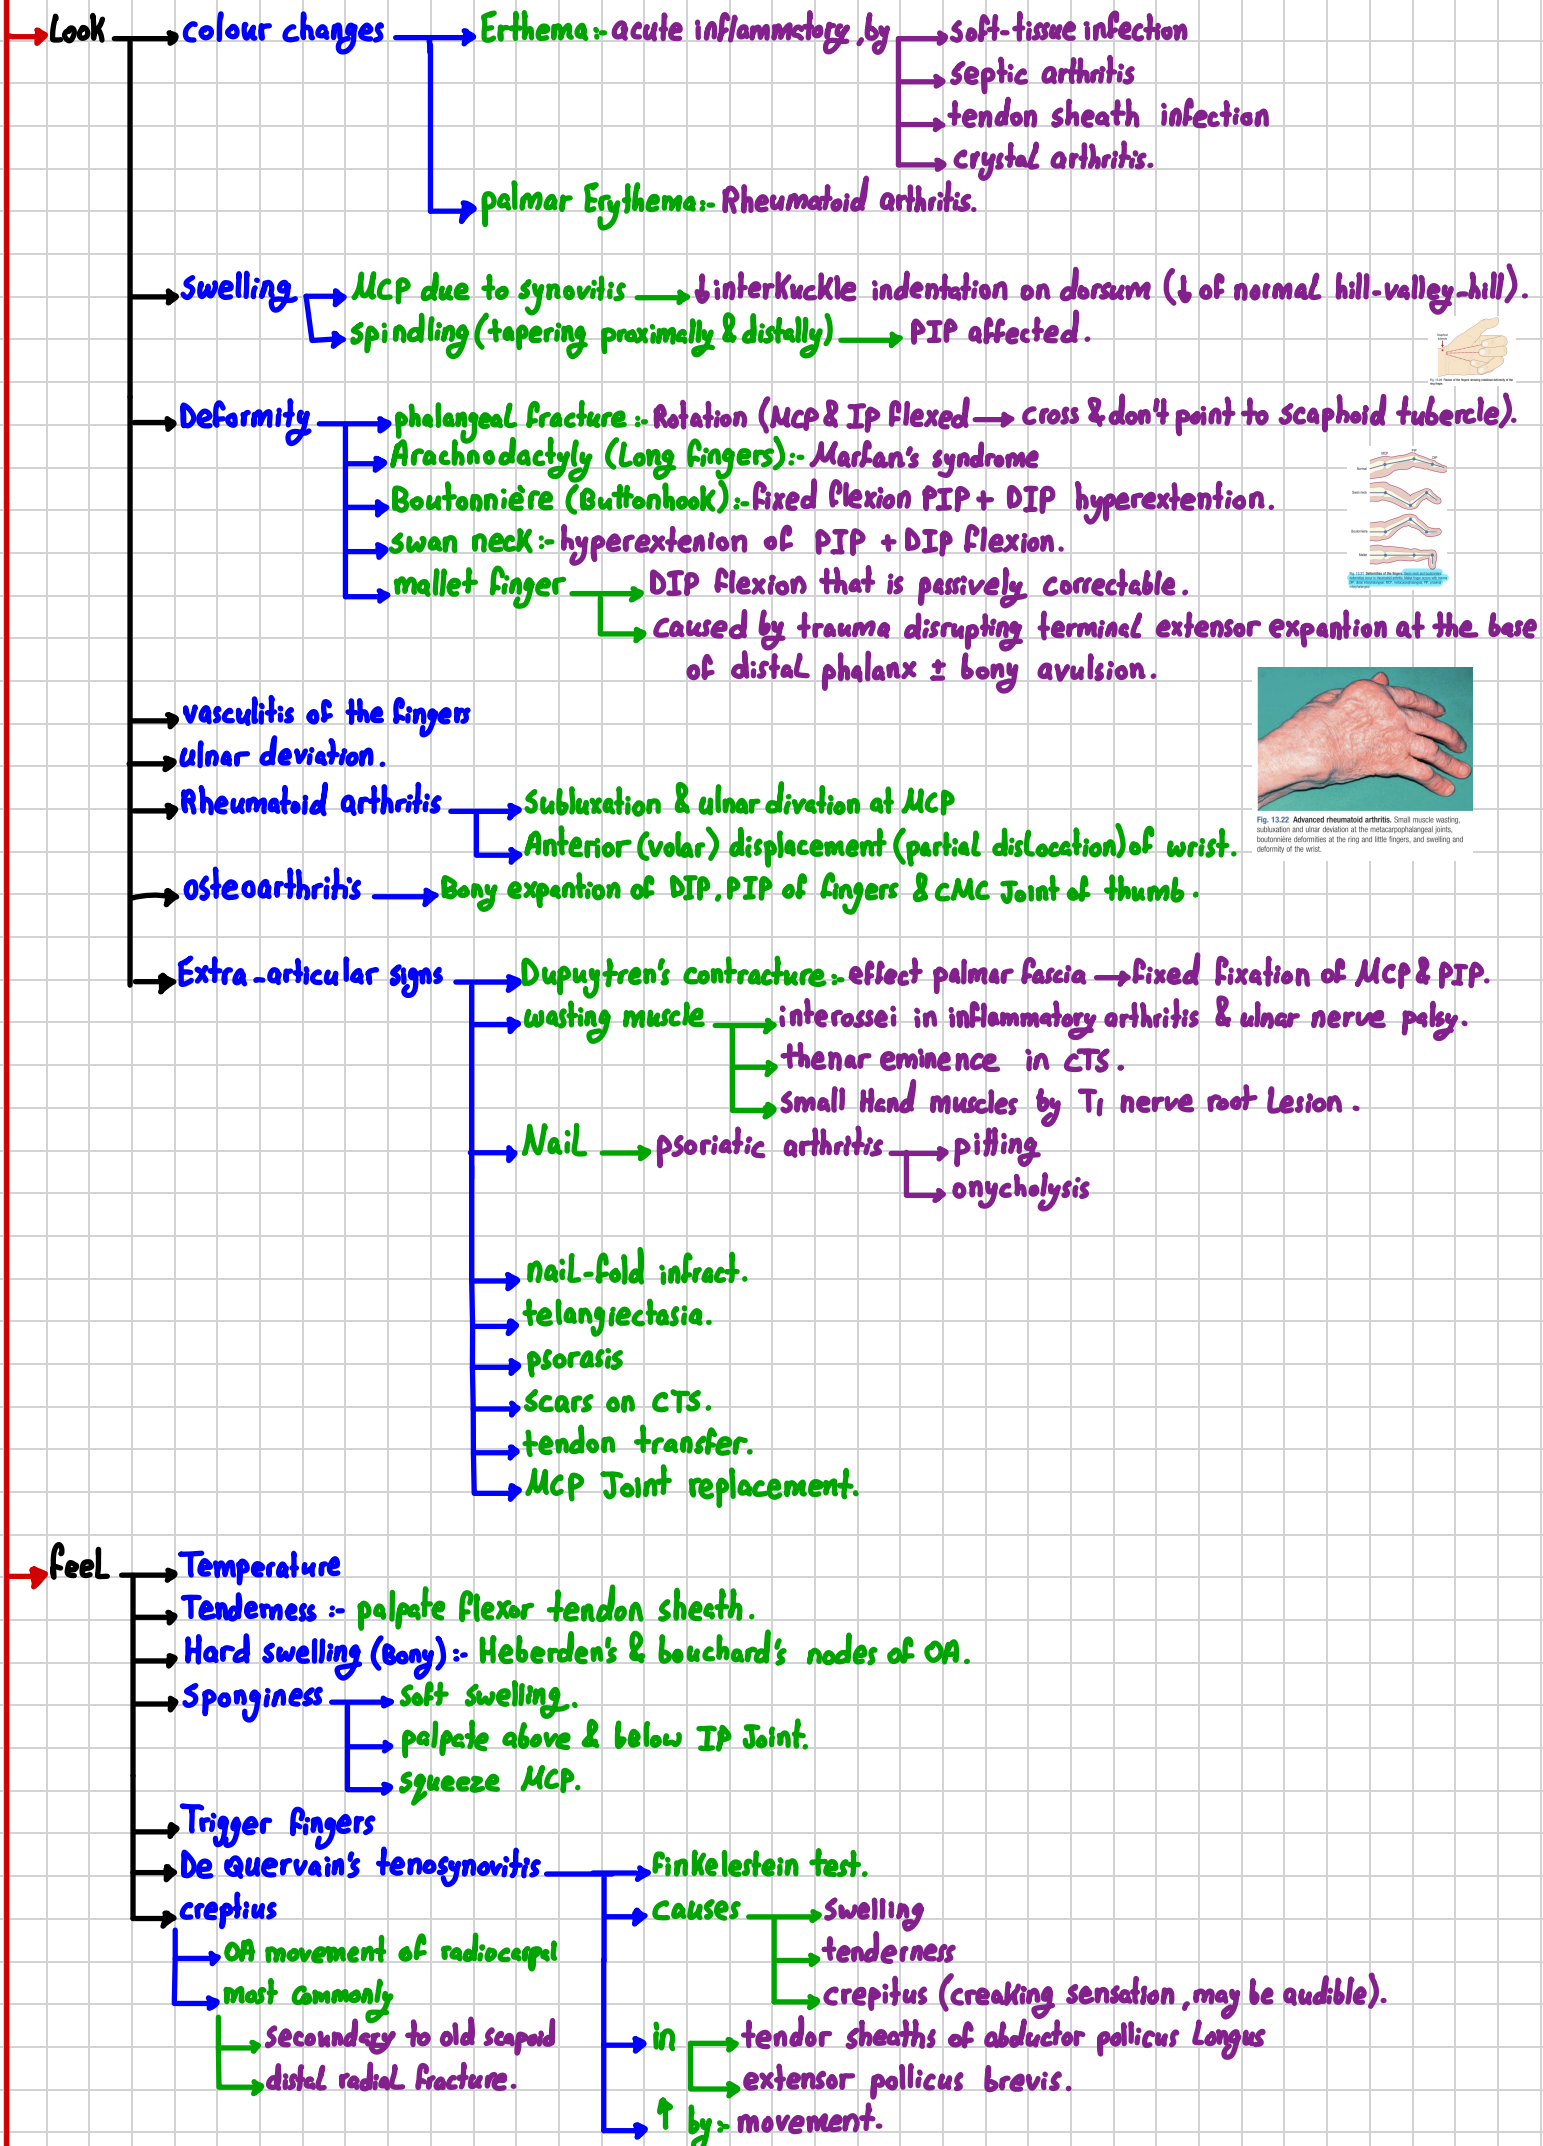 Look
colour changes
Erthema:- acute inflammatory, by
soft-tissue infection
septic arthritis
tendon sheath infection
crystal arthritis.
palmar Erythema:- Rheumatoid arthritis.
Swelling
MCP due to synovitis → ↓interkuckle indentation on dorsum (↓ of normal hill-valley-hill).
spindling (tapering proximally & distally) → PIP affected.
Deformity
phalangeal fracture :- Rotation (MCP & IP flexed → cross & don't point to scaphoid tubercle).
Arachnodactyly (Long fingers):- Marfan's syndrome
Boutonnière (Buttonhook):- fixed flexion PIP + DIP hyperextention.
swan neck:- hyperextenion of PIP + DIP flexion.
mallet finger
DIP flexion that is passively correctable.
caused by trauma disrupting terminal extensor expantion at the base
of distal phalanx ± bony avulsion.
MCP
PIP
DIP
Normal
Swan neck
Boutonnière
Mallet
vasculitis of the fingers
ulnar deviation.
Rheumatoid arthritis
Subluxation & ulnar divation at MCP
Anterior (volar) displacement (partial dislocation) of wrist.
Fig. 13.22 Advanced rheumatoid arthritis. Small muscle wasting,
subluxation and ulnar deviation at the metacarpophalangeal joints,
boutonnière deformities at the ring and little fingers, and swelling and
deformity of the wrist.
osteoarthritis → Bony expantion of DIP, PIP of fingers & CMC Joint of thumb.
Extra-articular signs
Dupuytren's contracture:- effect palmar fascia → fixed fixation of MCP & PIP.
wasting muscle
interossei in inflammatory arthritis & ulnar nerve palsy.
thenar eminence in CTS.
small Hand muscles by T1 nerve root Lesion.
Nail → psoriatic arthritis
pitting
onycholysis
nail-fold infract.
telangiectasia.
psorasis
scars on CTS.
tendon transfer.
MCP Joint replacement.
feel
Temperature
Tenderness :- palpate flexor tendon sheath.
Hard swelling (Bony):- Heberden's & bouchard's nodes of OA.
Sponginess
soft swelling.
palpate above & below IP Joint.
squeeze MCP.
Trigger fingers
De quervain's tenosynovitis
finkelestein test.
causes
swelling
tenderness
crepitus (creaking sensation, may be audible).
in
tendor sheaths of abductor pollicus Longus
extensor pollicus brevis.
↑ by:- movement.
creptius
OA movement of radiocarpal
most commonly
secoundary to old scapoid
distal radial fracture.